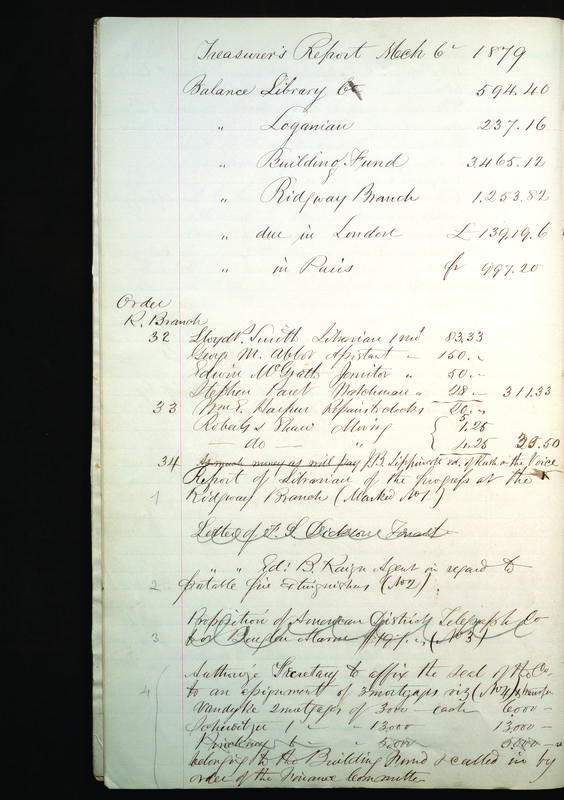 Treasurer's Report Mch 6th 1879
Balance Library Co 594.40
" Loganian 237.16
" Building Fund 3.465.12
" Ridgway Branch 1.253.82
" due in London £139.19.6
" in Paris fr 997.20
Order
R. Branch
32 Lloyd P. Smith Librarian 1 mo 83.33
George M. Abbot Assistant " 150.
Edwin McGrath Janitor " 50.
Stephen Paret Watchman " 28 — 311.33
33 Wm E. Harpur Repairs to clocks
Robats & Shaw Moving 1.25
— do — " 4.25
34 So much money as will pay J.B. Lippincott
1 Report of Librarian of the progress at the
Ridgway Branch (Marked No 1)
Letter of F. S. Dickson
" " Ed. B. Agent in regard to
2 portable fire extinguishers (No 2)
Proposition of American District Telegraph Co
3 for Burglar Alarm (No 3)
4 Authorize Secretary to affix the seal of the Co.
to an assignment of 3 mortgages viz (No 4)
Vandyke 2 mortgages of 3000 — each 6000 —
1 " " 13,000 13,000 —
belonging to the Building Fund & called in by
order of the Finance Committee